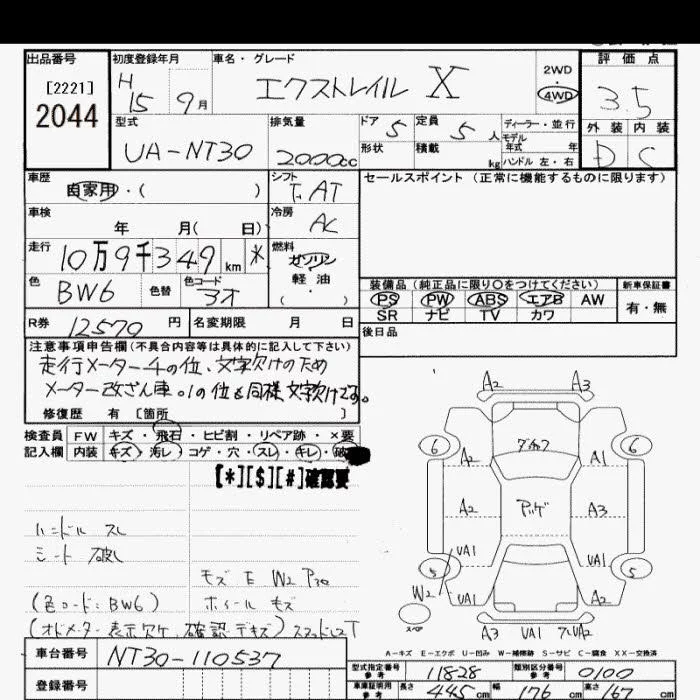 出品番号 初度登録年月 車名・グレード 評価点
[2221]
2044
H 15 9月
エクストレイル X
2WD
4WD
3.5
型式 排気量 ドア 定員 ディーラー・並行
UA-NT30 2000cc 5 5人
モデル年式 年
形状 積載 kg ハンドル 左・右
外装 内装
D C
車歴 シフト セールスポイント(正常に機能するものに限ります)
自家用・( )
F.AT
車検 冷房
年 月( 日) AC
走行 燃料
10万9千349km *
ガソリン
軽油
( )
色 色替 色コード
BW6 3オ
装備品(純正品に限り○をつけてください) 新車保証書
PS PW ABS エアB AW
SR ナビ TV カワ
有・無
R券 12570円 名変期限 月 日 後日品
注意事項申告欄(不具合内容等は具体的に記入して下さい)
走行メーター千の位、文字欠けのため
メーター改ざん車。1の位も同様文字欠けです。
修復歴 有[箇所 ]
検査員 FW キズ・飛石・ヒビ割・リペア跡・×要
記入欄 内装 キズ・汚レ・コゲ・穴・スレ・キレ・破
[*][$][#]確認要
ハンドル スレ
シート 破レ
(色コード:BW6)
(オドメーター表示欠ケ、確認デキズ)
ホイール キズ
A2 A3
6 6
A2 A1
A2 A3
UA1 UA1
5 5
W2
UA1 A2
スペア
A3 UA1
A-キズ E-エクボ U-凹み W-補修跡 S-サビ C-腐食 XX-交換済
車台番号 NT30-110537
登録番号
型式指定番号 参考 11828 類別区分番号 参考 0100
車庫証明用 参考 長さ 445cm 幅 176cm 高さ 167cm